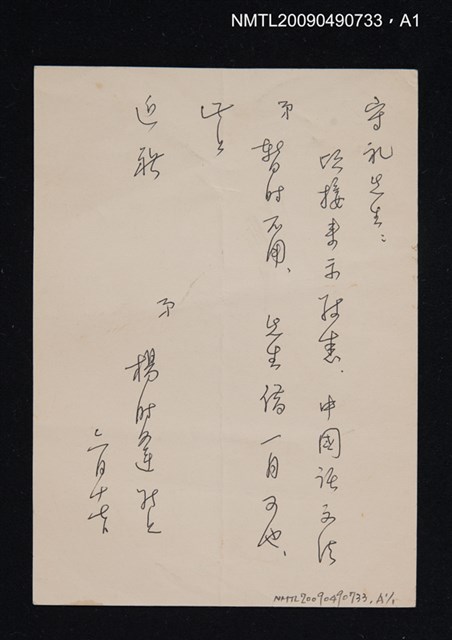 NMTL20090490733，A1
守礼先生：
頃接来示敬悉、中國語文法
弟暫时不用、先生借一月可也、
此上
近祺
弟
楊时逢敬上
六月十七日
NMTL20090490733，A1/1